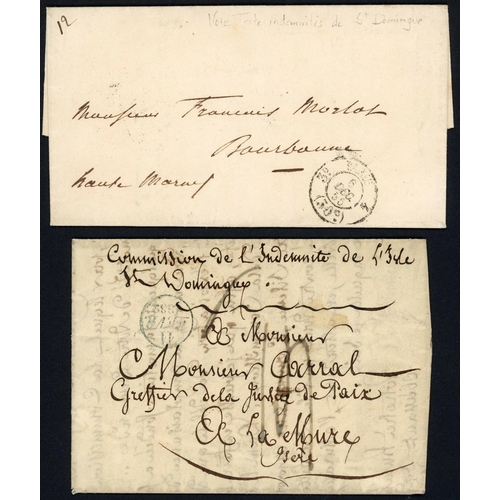 12
Voir Texte indemnités de St Domingue
Monsieur François Morlot
Bourbonne
haute Marne
Commission de l'Indemnite de L'Isle
St Domingue.
A Monsieur
Monsieur Carral
Greffier de la Justice de Paix
A La Mure
Isère